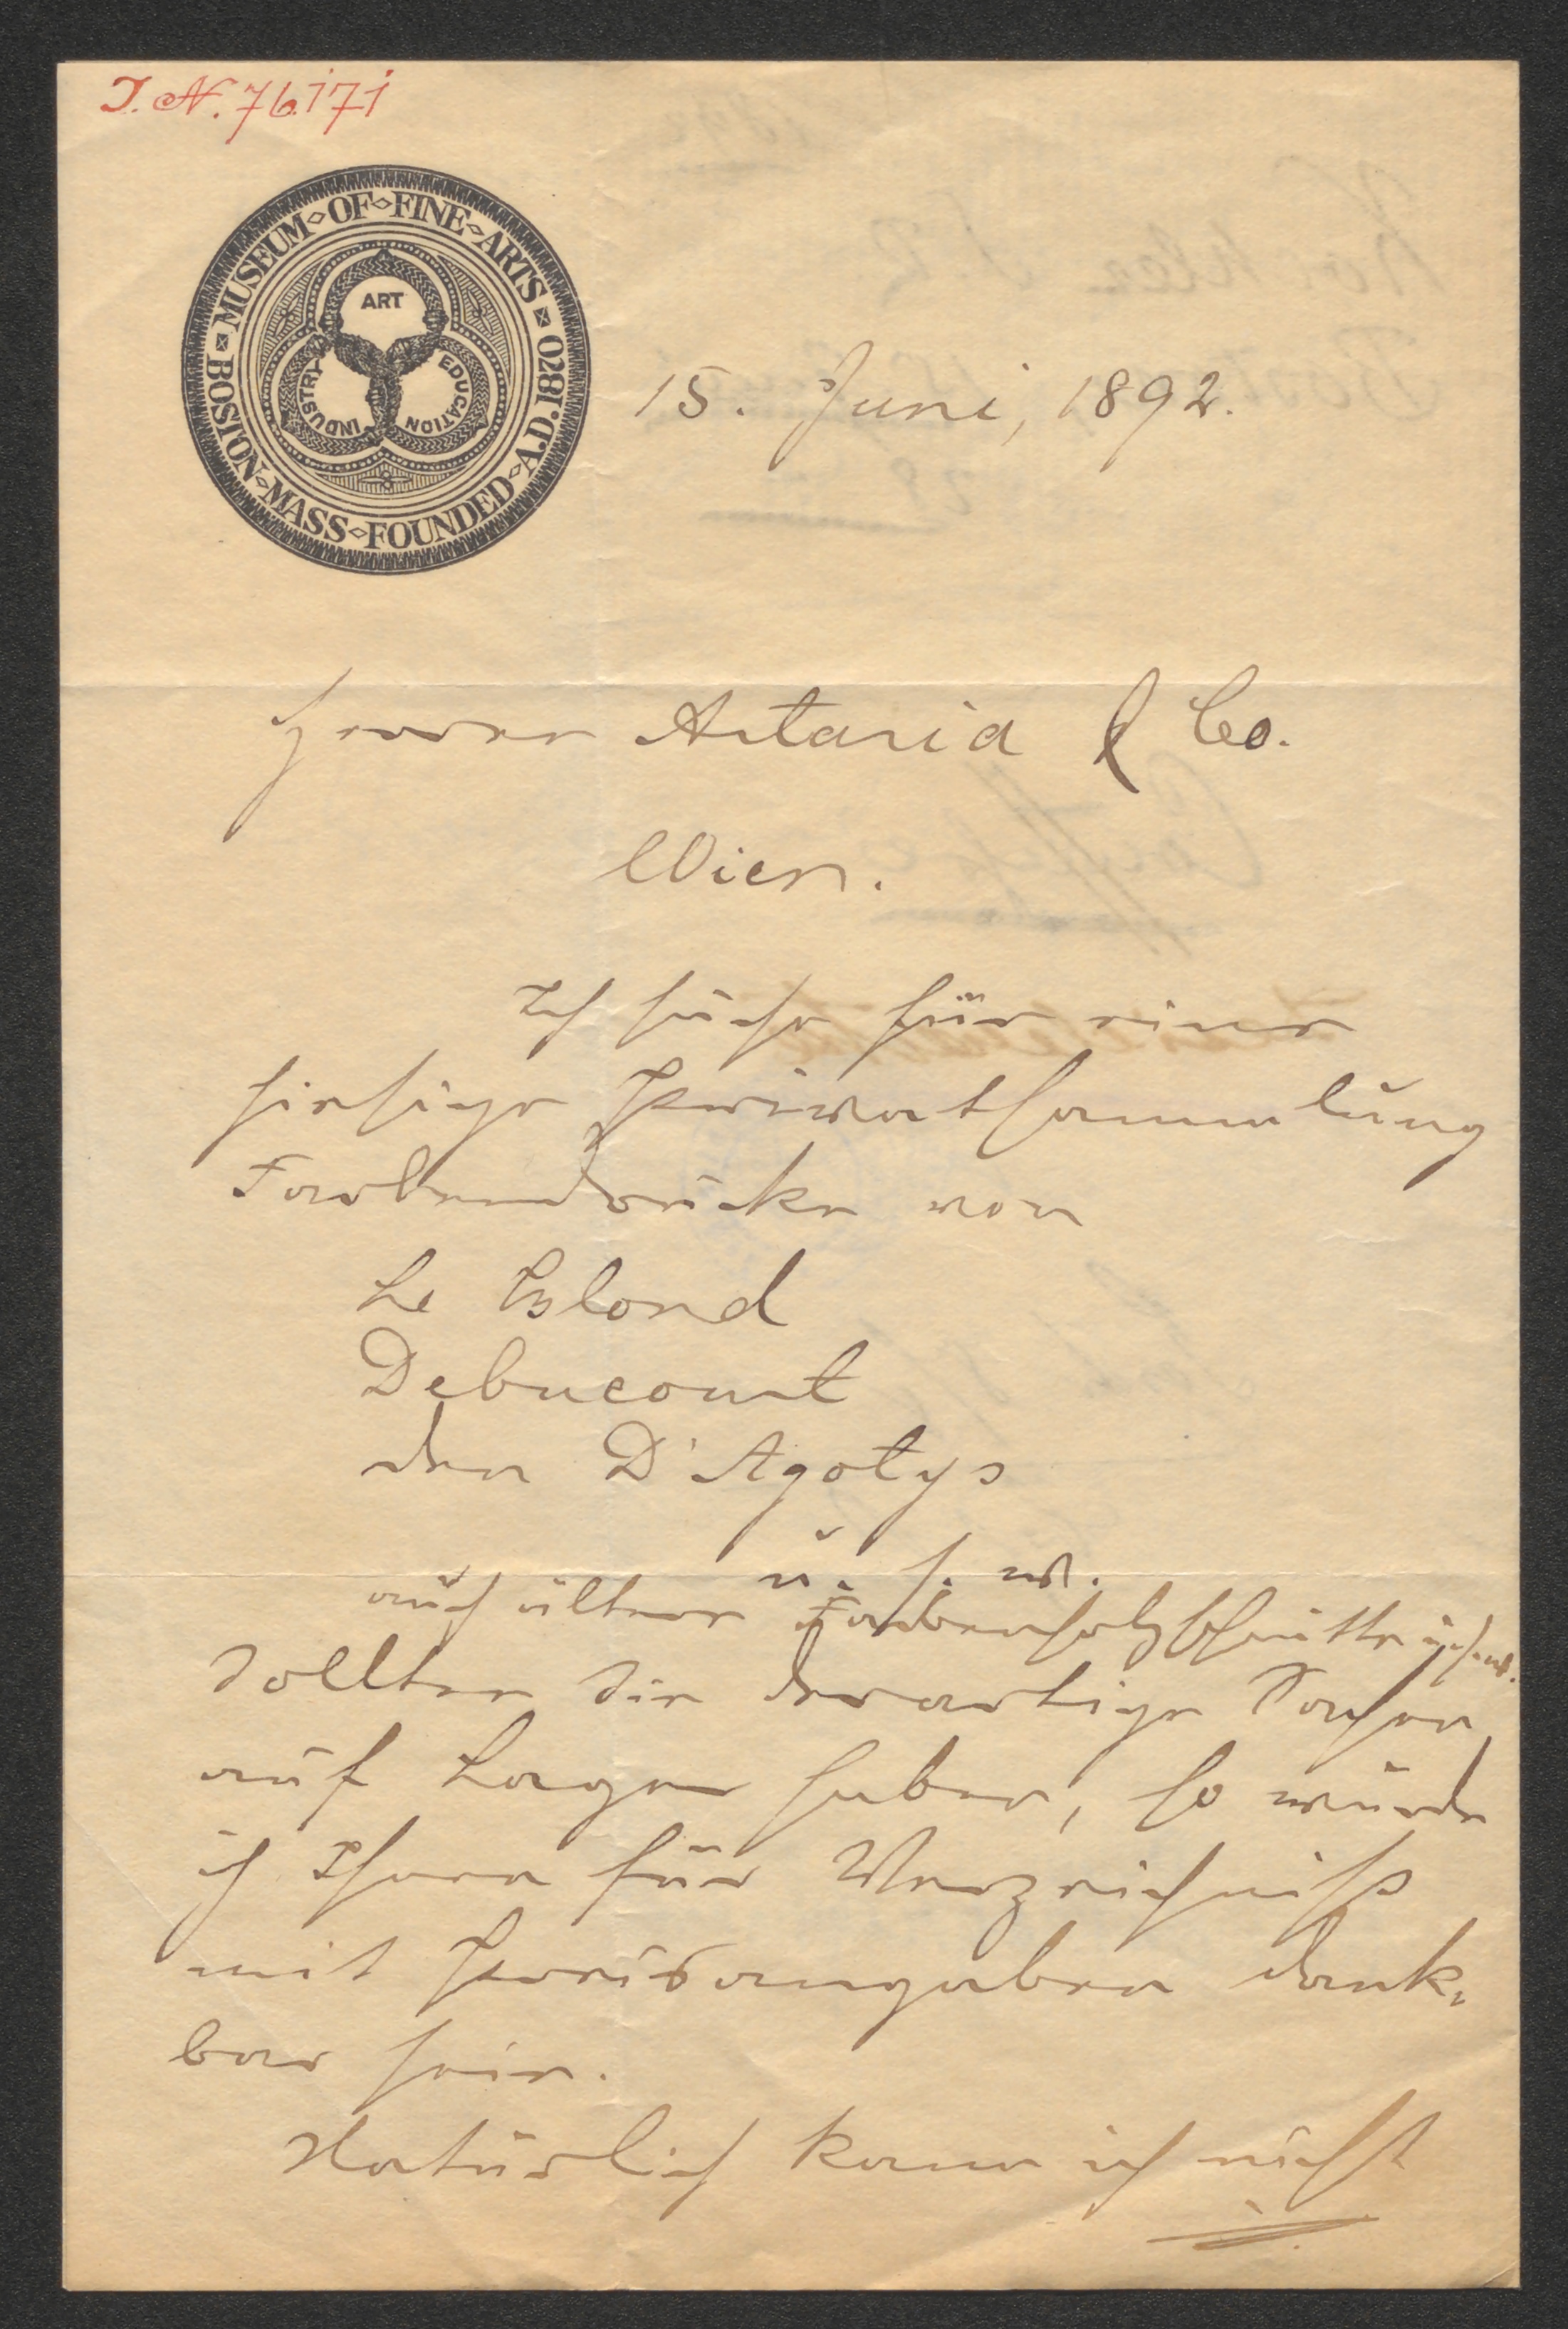 I. N. 76.171
MUSEUM OF FINE ARTS
BOSTON MASS FOUNDED A.D. 1870
ART
INDUSTRY
EDUCATION
15. Juni, 1892.
Herren Artaria & Co.
Wien.
Ich suche für eine
hiesige Privatsammlung
Farbendrucke von
Le Blond
Debucourt
den D'Agotys
u. s. w.
auch älterer Farbenholzschnitte u. s. w.
Sollten Sie derartige Sachen
auf Lager haben, so würde
ich Ihnen für Verzeichniß
mit Preisangaben dank-
bar sein.
Natürlich kann ich nicht